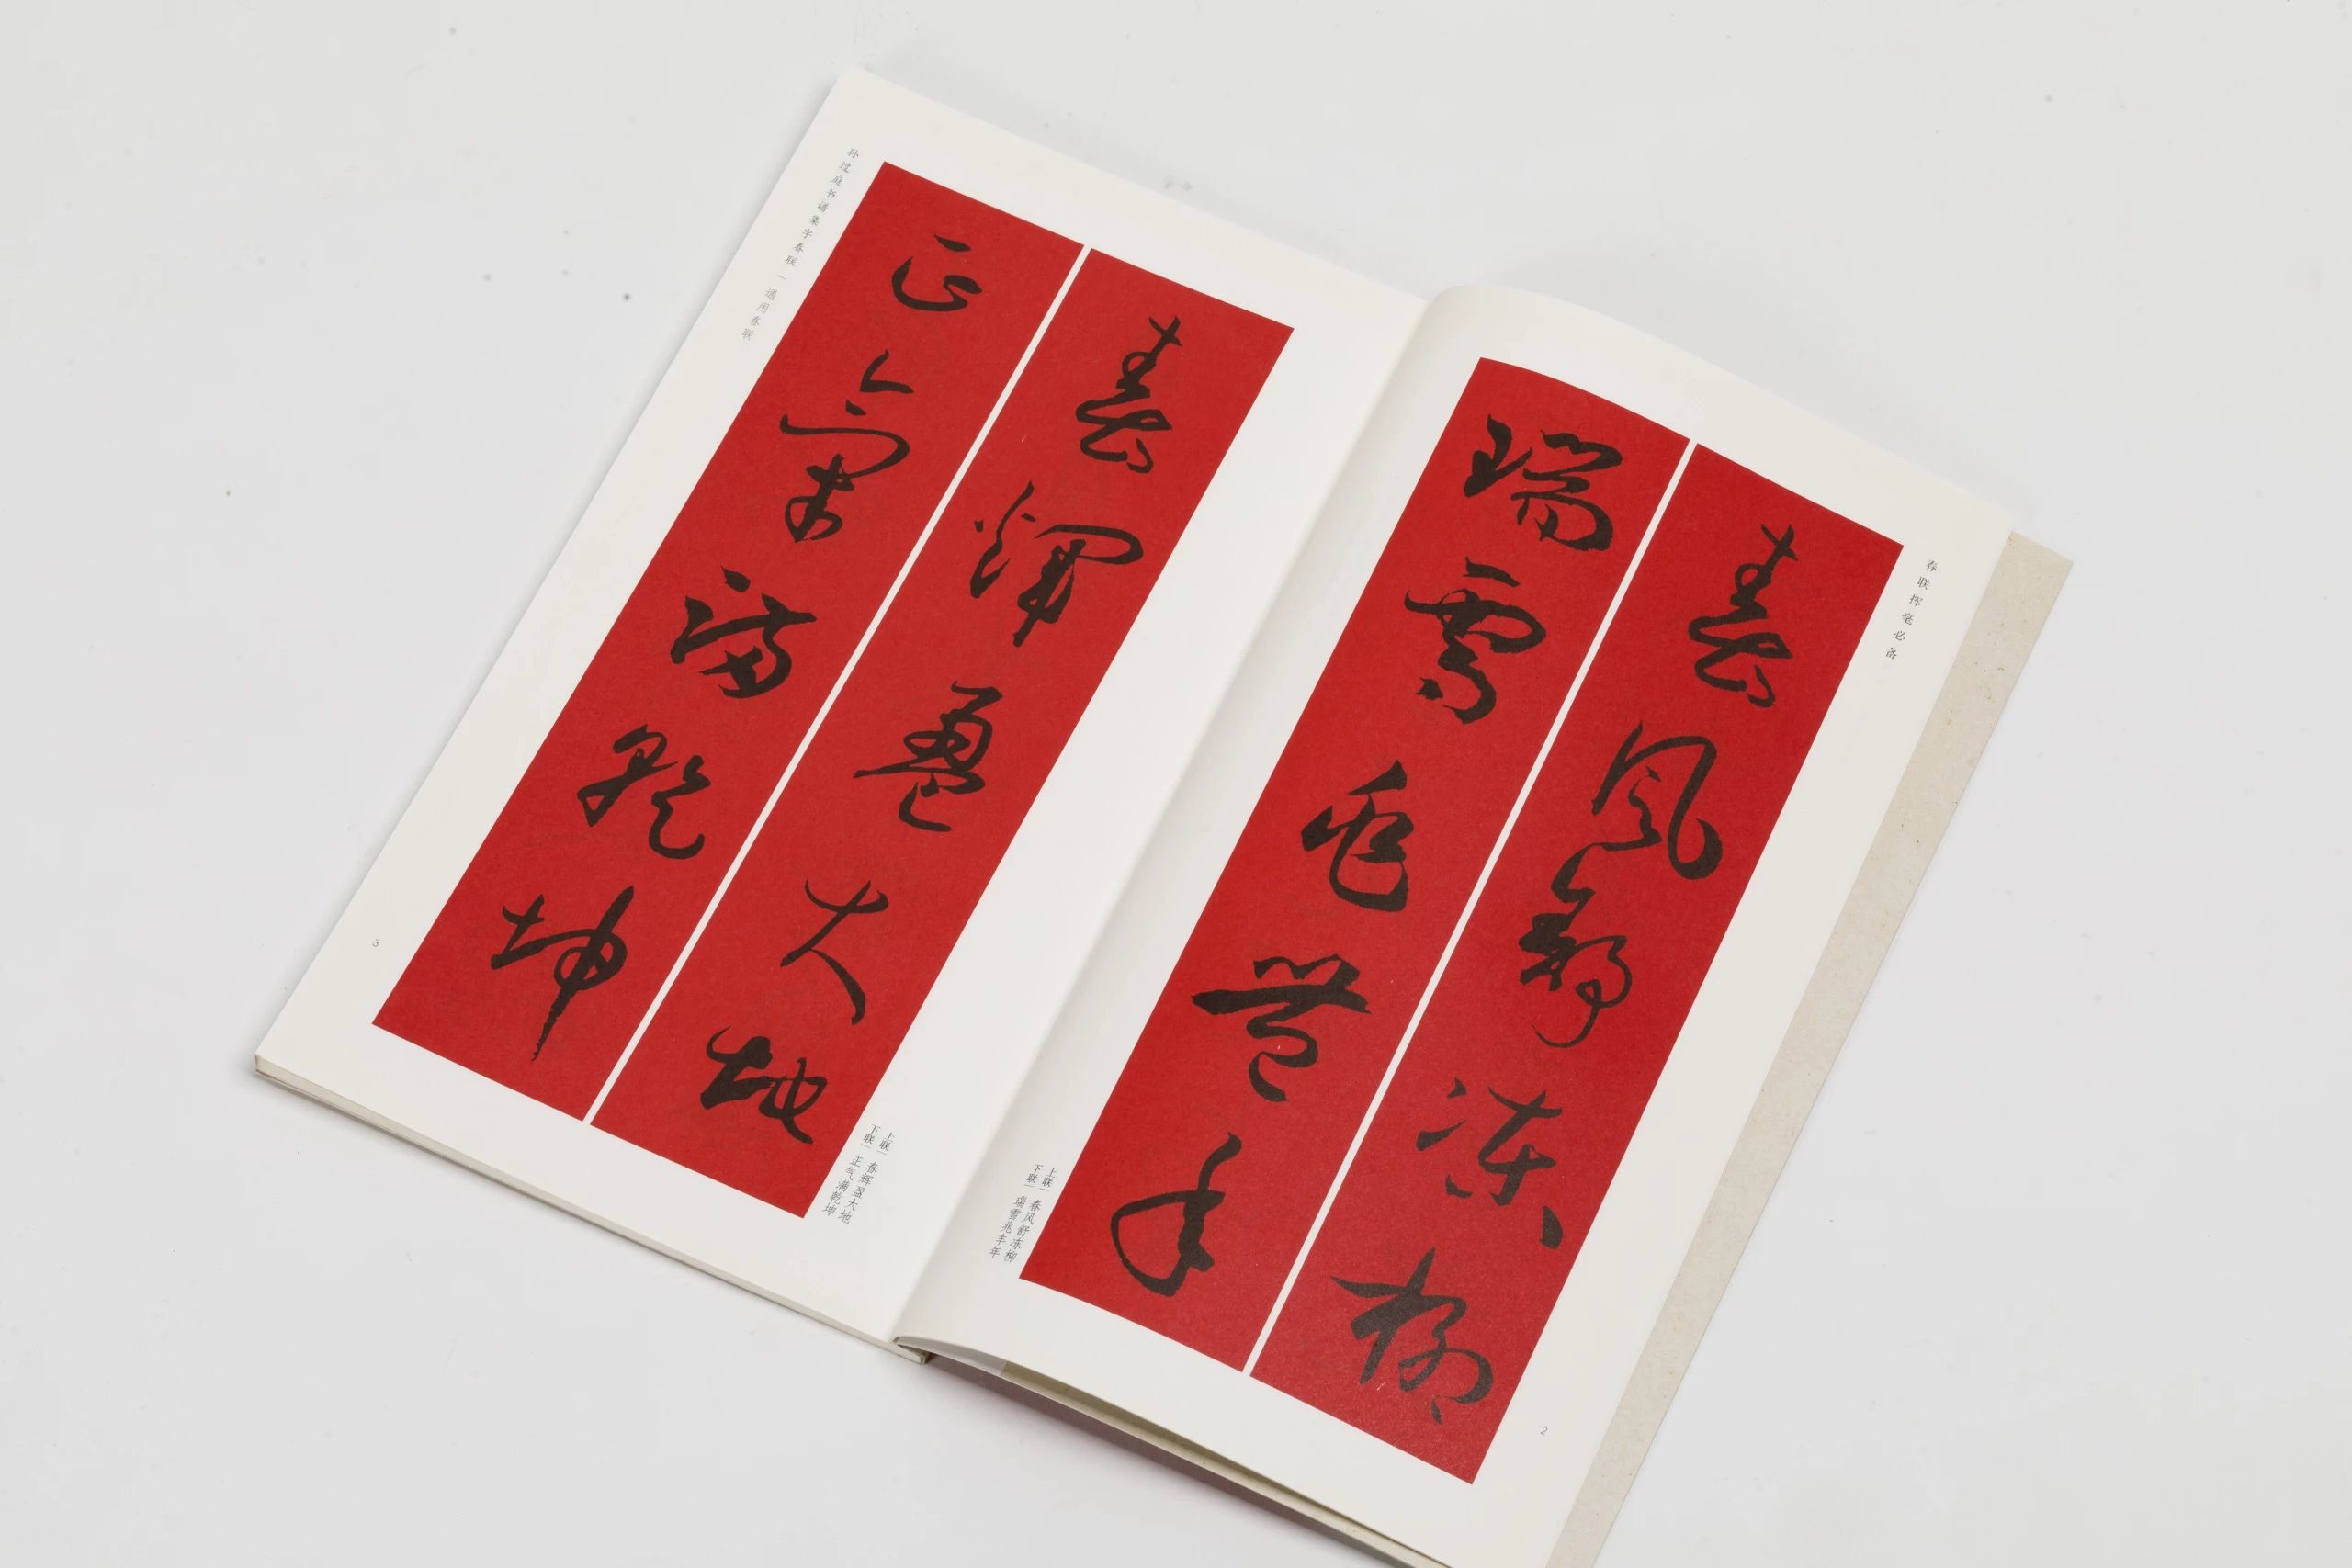 春联挥毫必备
春风舒冻柳
瑞雪兆丰年
上联｜春风舒冻柳
下联｜瑞雪兆丰年
2
春辉盈大地
正气满乾坤
上联｜春辉盈大地
下联｜正气满乾坤
孙过庭书谱集字春联｜通用春联
3